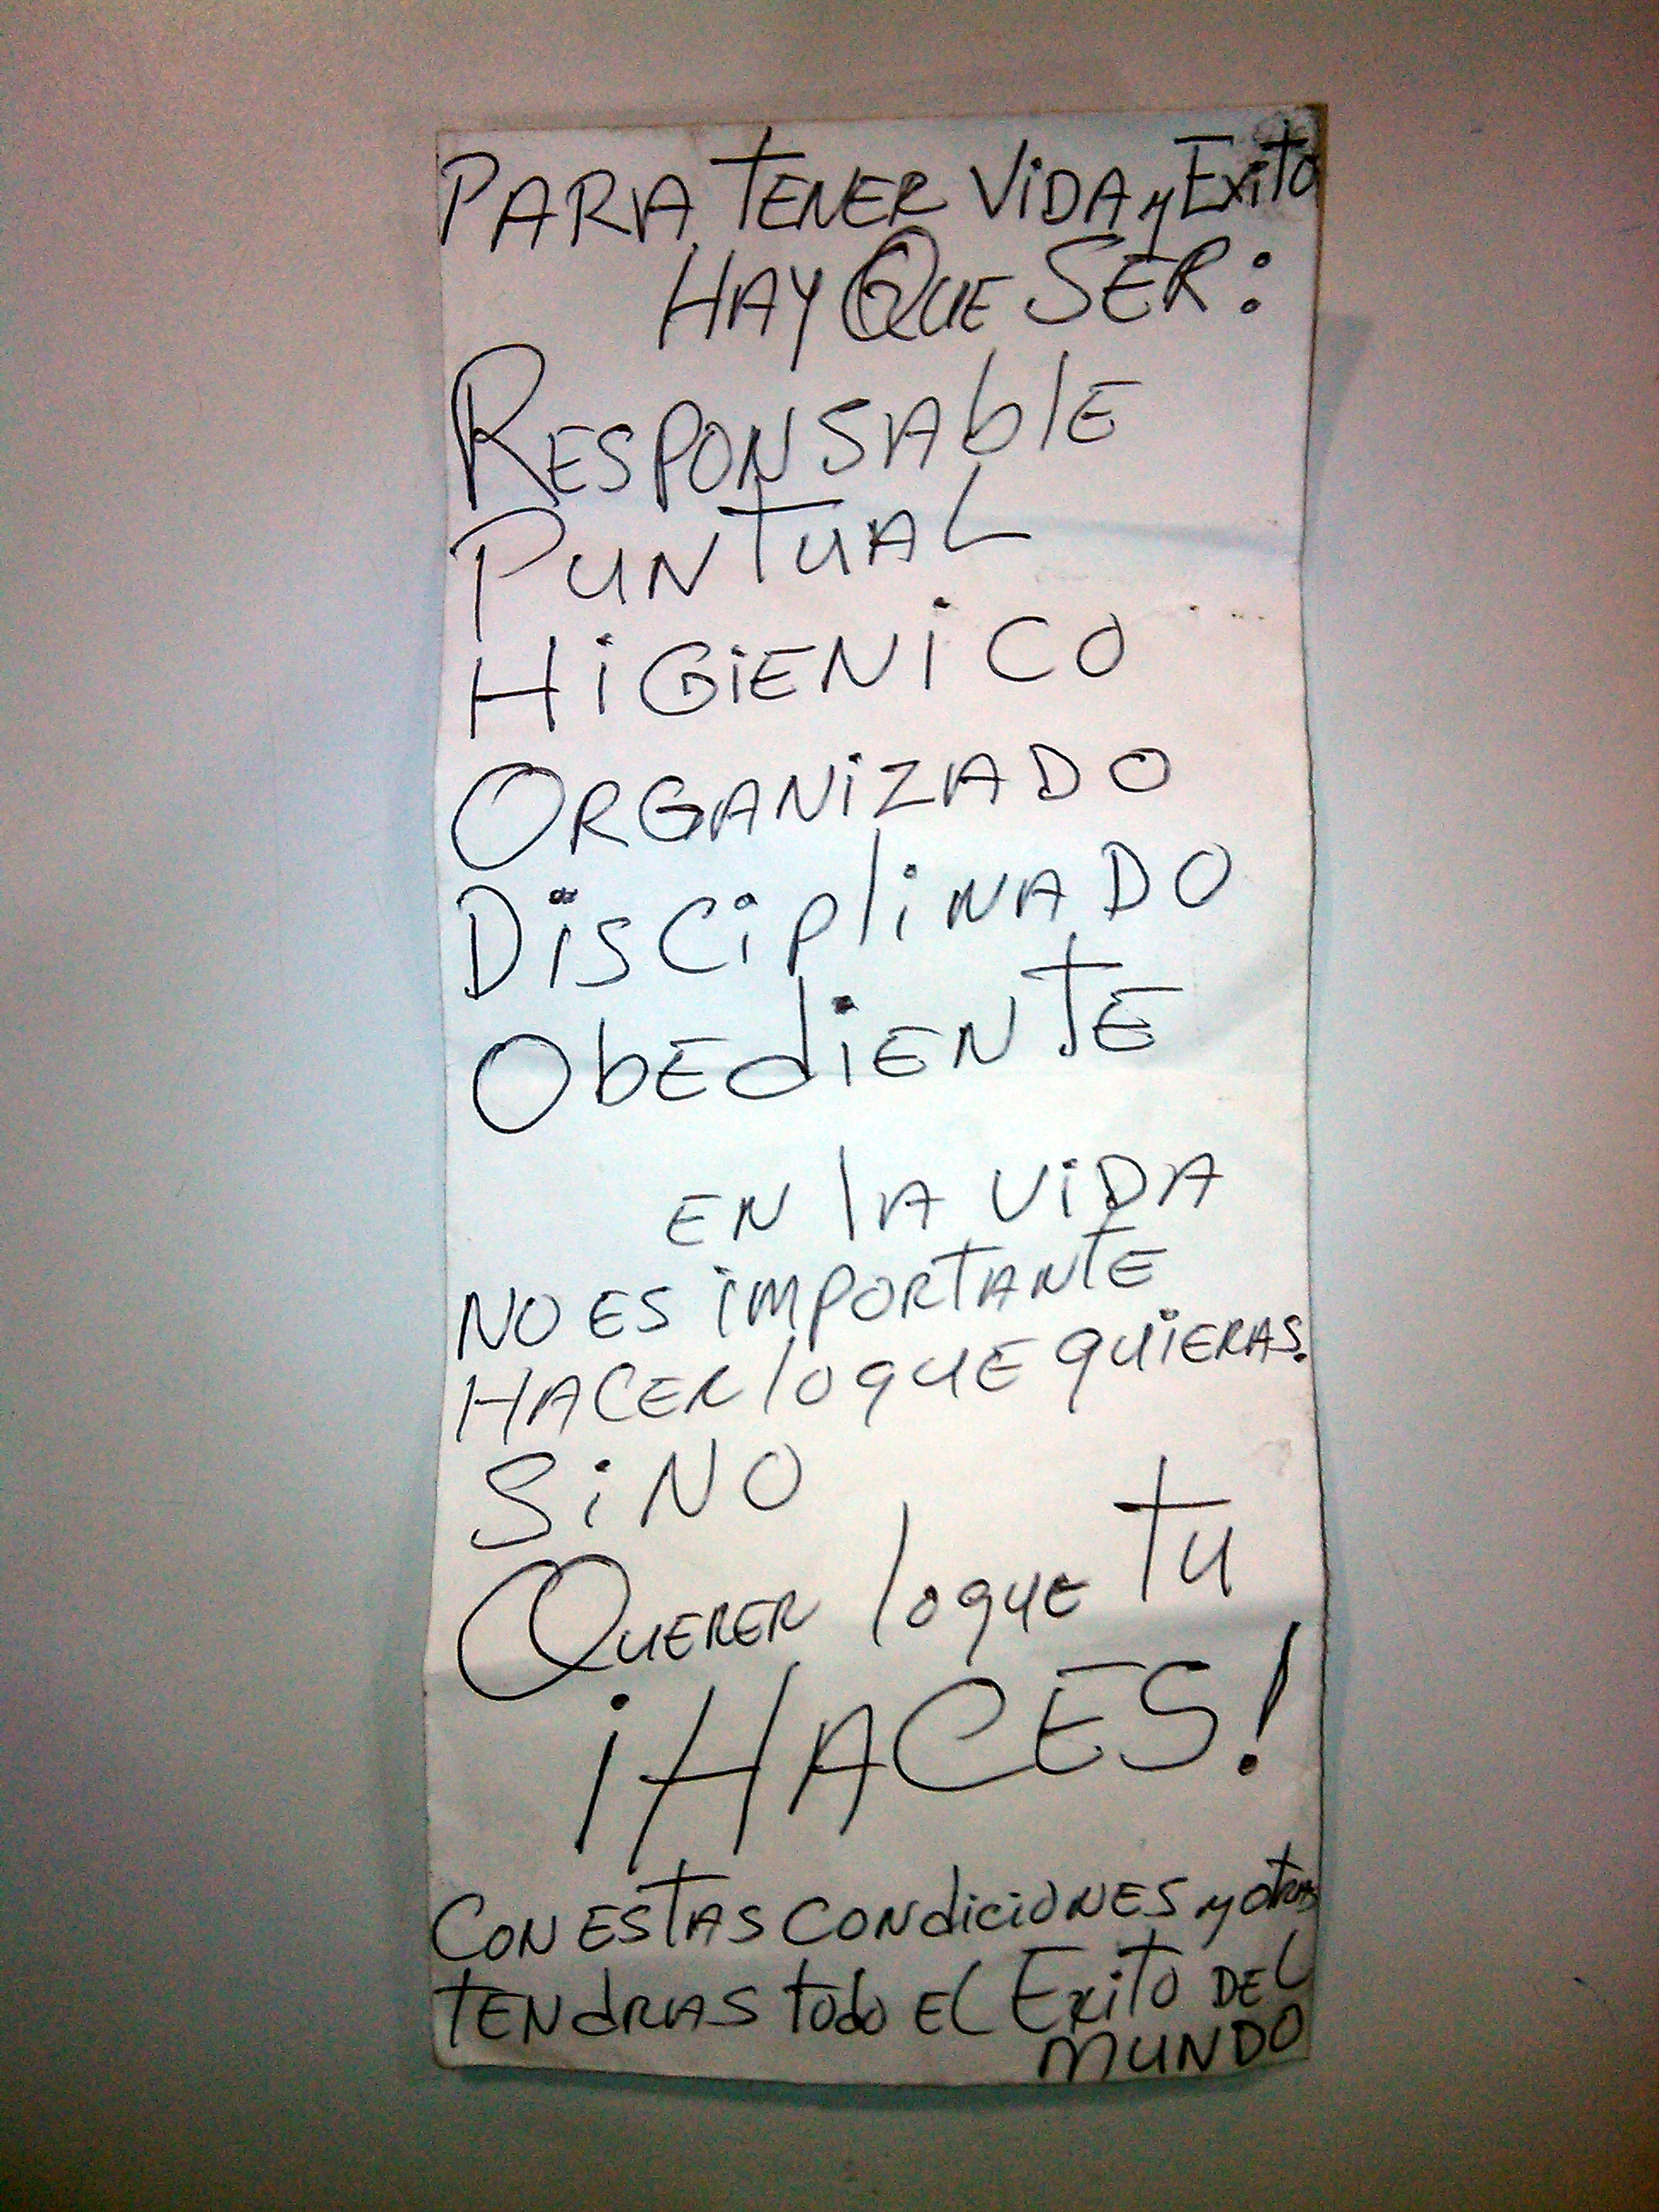 PARA TENER ViDA y Exito
HAY QUE SER:
RESPONSAblE
PUNTUAL
HiGiENiCO
ORGANiZADO
DisCiplinADO
ObEdiENTE
EN lA ViDA
NO ES iMPORTANTE
HACER lo qUE qUiERAS.
SiNO
QUERER lo qUE TU
¡HACES!
CON ESTAS CONdiciONES y otras
TENdRAS todo EL Exito DEL
MUNDO